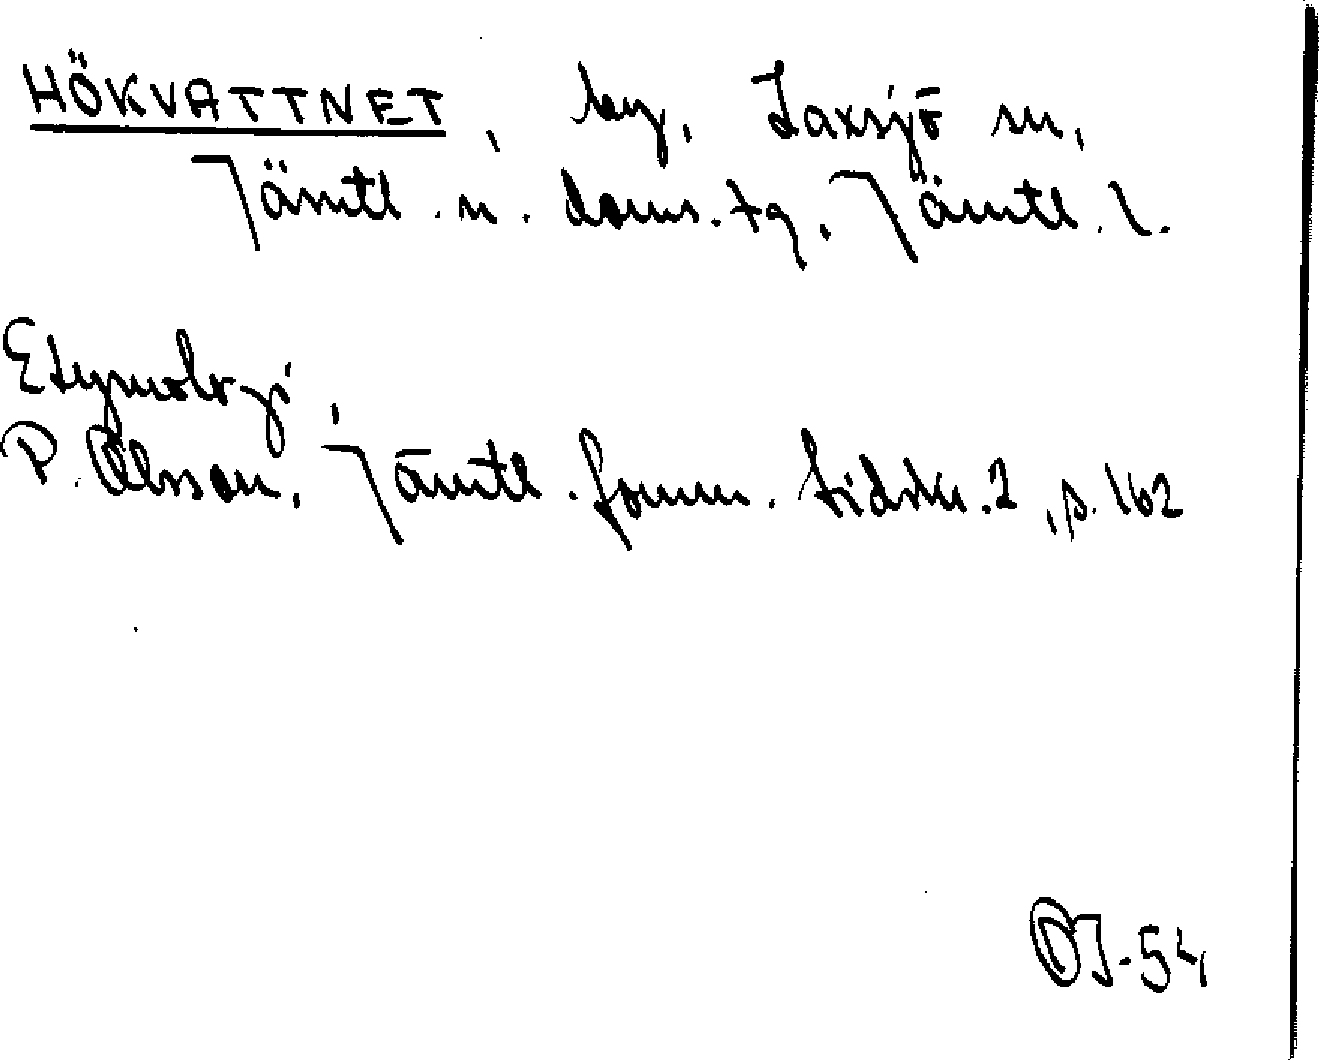 HÖKVATTNET, by, Laxsjö sn,
Jämtl. n. doms. tg, Jämtl. l.
Etymologi,
P. Olsson, Jämtl. fornm. tidskr. 2, s. 162
OJ-54